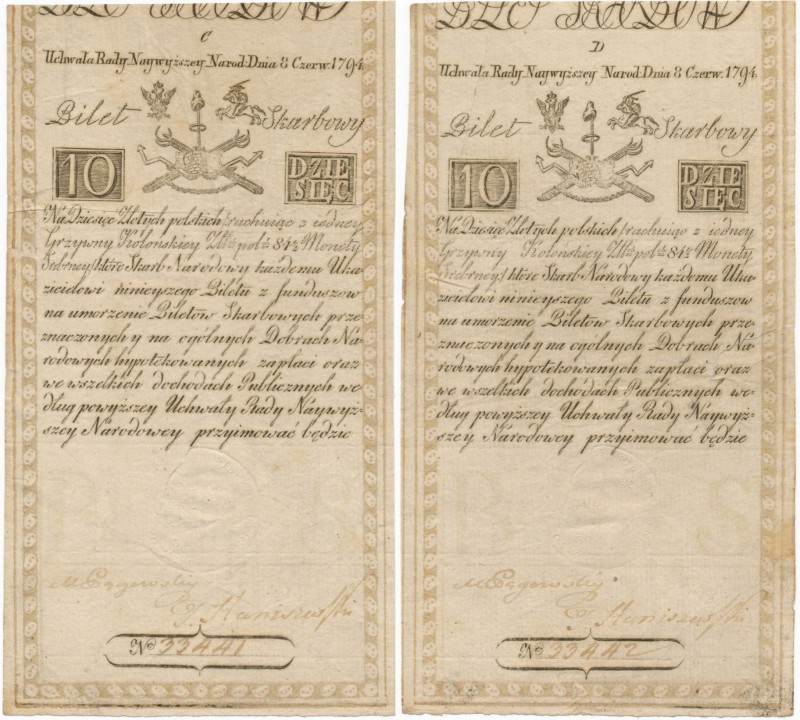 C
Uchwała Rady Naywyższey Narod: Dnia 8 Czerw. 1794.
Bilet Skarbowy
10 DZIE
SIĘC
Na Dziesięc Złotych polskich /rachuiąc z iedney
Grzywny Kolonskiey Złt: pol: 84½ Monety
Srebrney/ które Skarb Narodowy każdemu Uka-
zicielowi ninieyszego Biletu z funduszow
na umorzenie Biletów Skarbowych prze-
znaczonych y na ogólnych Dobrach Na-
rodowych hypotekowanych zapłaci oraz
we wszelkich dochodach Publicznych we-
dług powyższey Uchwały Rady Naywyż-
szey Narodowey przyimować będzie
T. Staniszewski
No 33441
D
Uchwała Rady Naywyższey Narod: Dnia 8 Czerw. 1794.
Bilet Skarbowy
10 DZIE
SIĘC
Na Dziesięc Złotych polskich /rachuiąc z iedney
Grzywny Kolonskiey Złt: pol: 84½ Monety
Srebrney/ które Skarb Narodowy każdemu Uka-
zicielowi ninieyszego Biletu z funduszow
na umorzenie Biletów Skarbowych prze-
znaczonych y na ogolnych Dobrach Na-
rodowych hypotekowanych zapłaci oraz
we wszelkich dochodach Publicznych we-
dług powyższey Uchwały Rady Naywyż-
szey Narodowey przyimować będzie
T. Staniszewski
No 33442